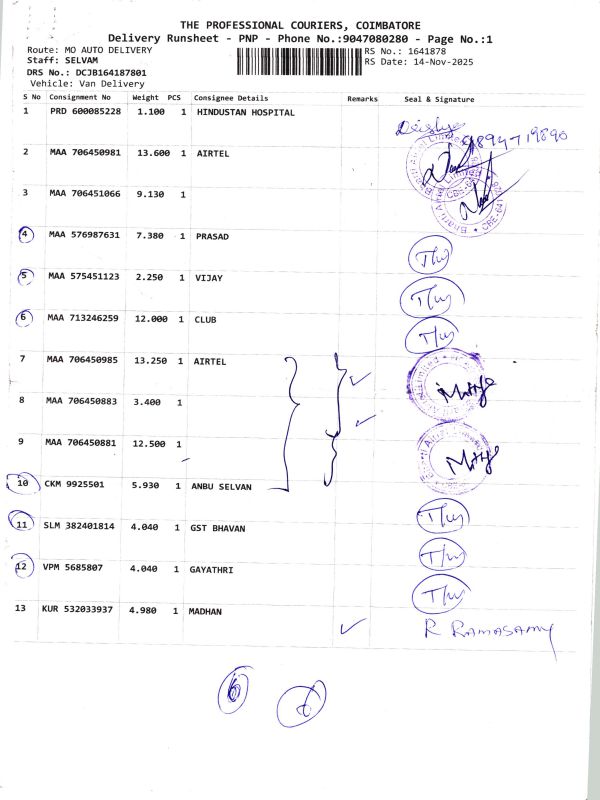 THE PROFESSIONAL COURIERS, COIMBATORE
Delivery Runsheet - PNP - Phone No.:9047080280 - Page No.:1
Route: MO AUTO DELIVERY RS No.: 1641878
Staff: SELVAM RS Date: 14-Nov-2025
DRS No.: DCJB164187801
Vehicle: Van Delivery
S No Consignment No Weight PCS Consignee Details Remarks Seal & Signature
1 PRD 600085228 1.100 1 HINDUSTAN HOSPITAL
9894719890
2 MAA 706450981 13.600 1 AIRTEL
3 MAA 706451066 9.130 1
4 MAA 576987631 7.380 1 PRASAD
5 MAA 575451123 2.250 1 VIJAY
6 MAA 713246259 12.000 1 CLUB
7 MAA 706450985 13.250 1 AIRTEL
8 MAA 706450883 3.400 1
9 MAA 706450881 12.500 1
10 CKM 9925501 5.930 1 ANBU SELVAN
11 SLM 382401814 4.040 1 GST BHAVAN
12 VPM 5685807 4.040 1 GAYATHRI
13 KUR 532033937 4.980 1 MADHAN
R RAMASAMY
6